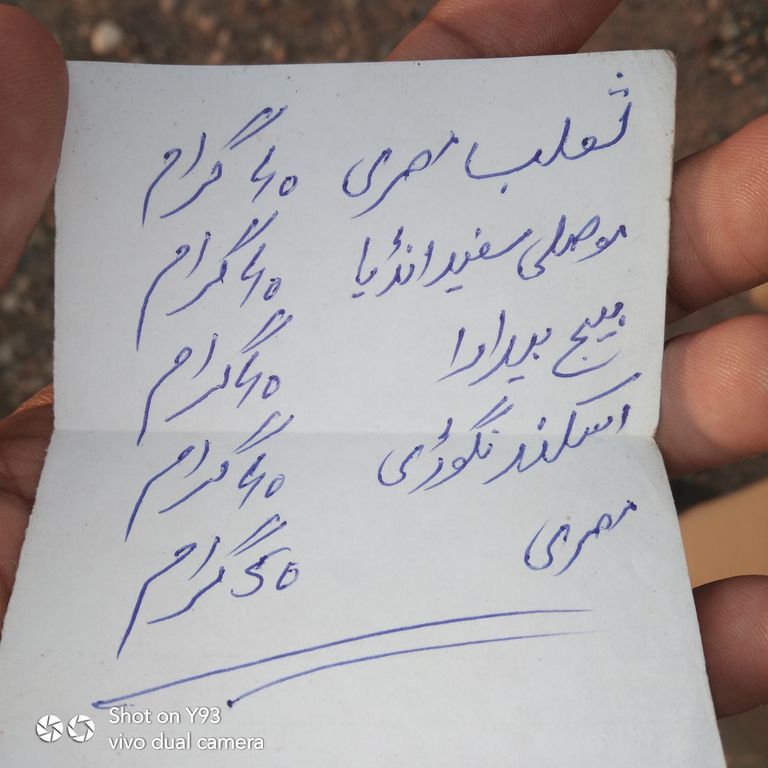 ثعلب مصری 40 گرام
موصلی سفید انڈیا 40 گرام
بیج بیدارا 40 گرام
اسکند نگوڑی 40 گرام
مصری 50 گرام
Shot on Y93
vivo dual camera